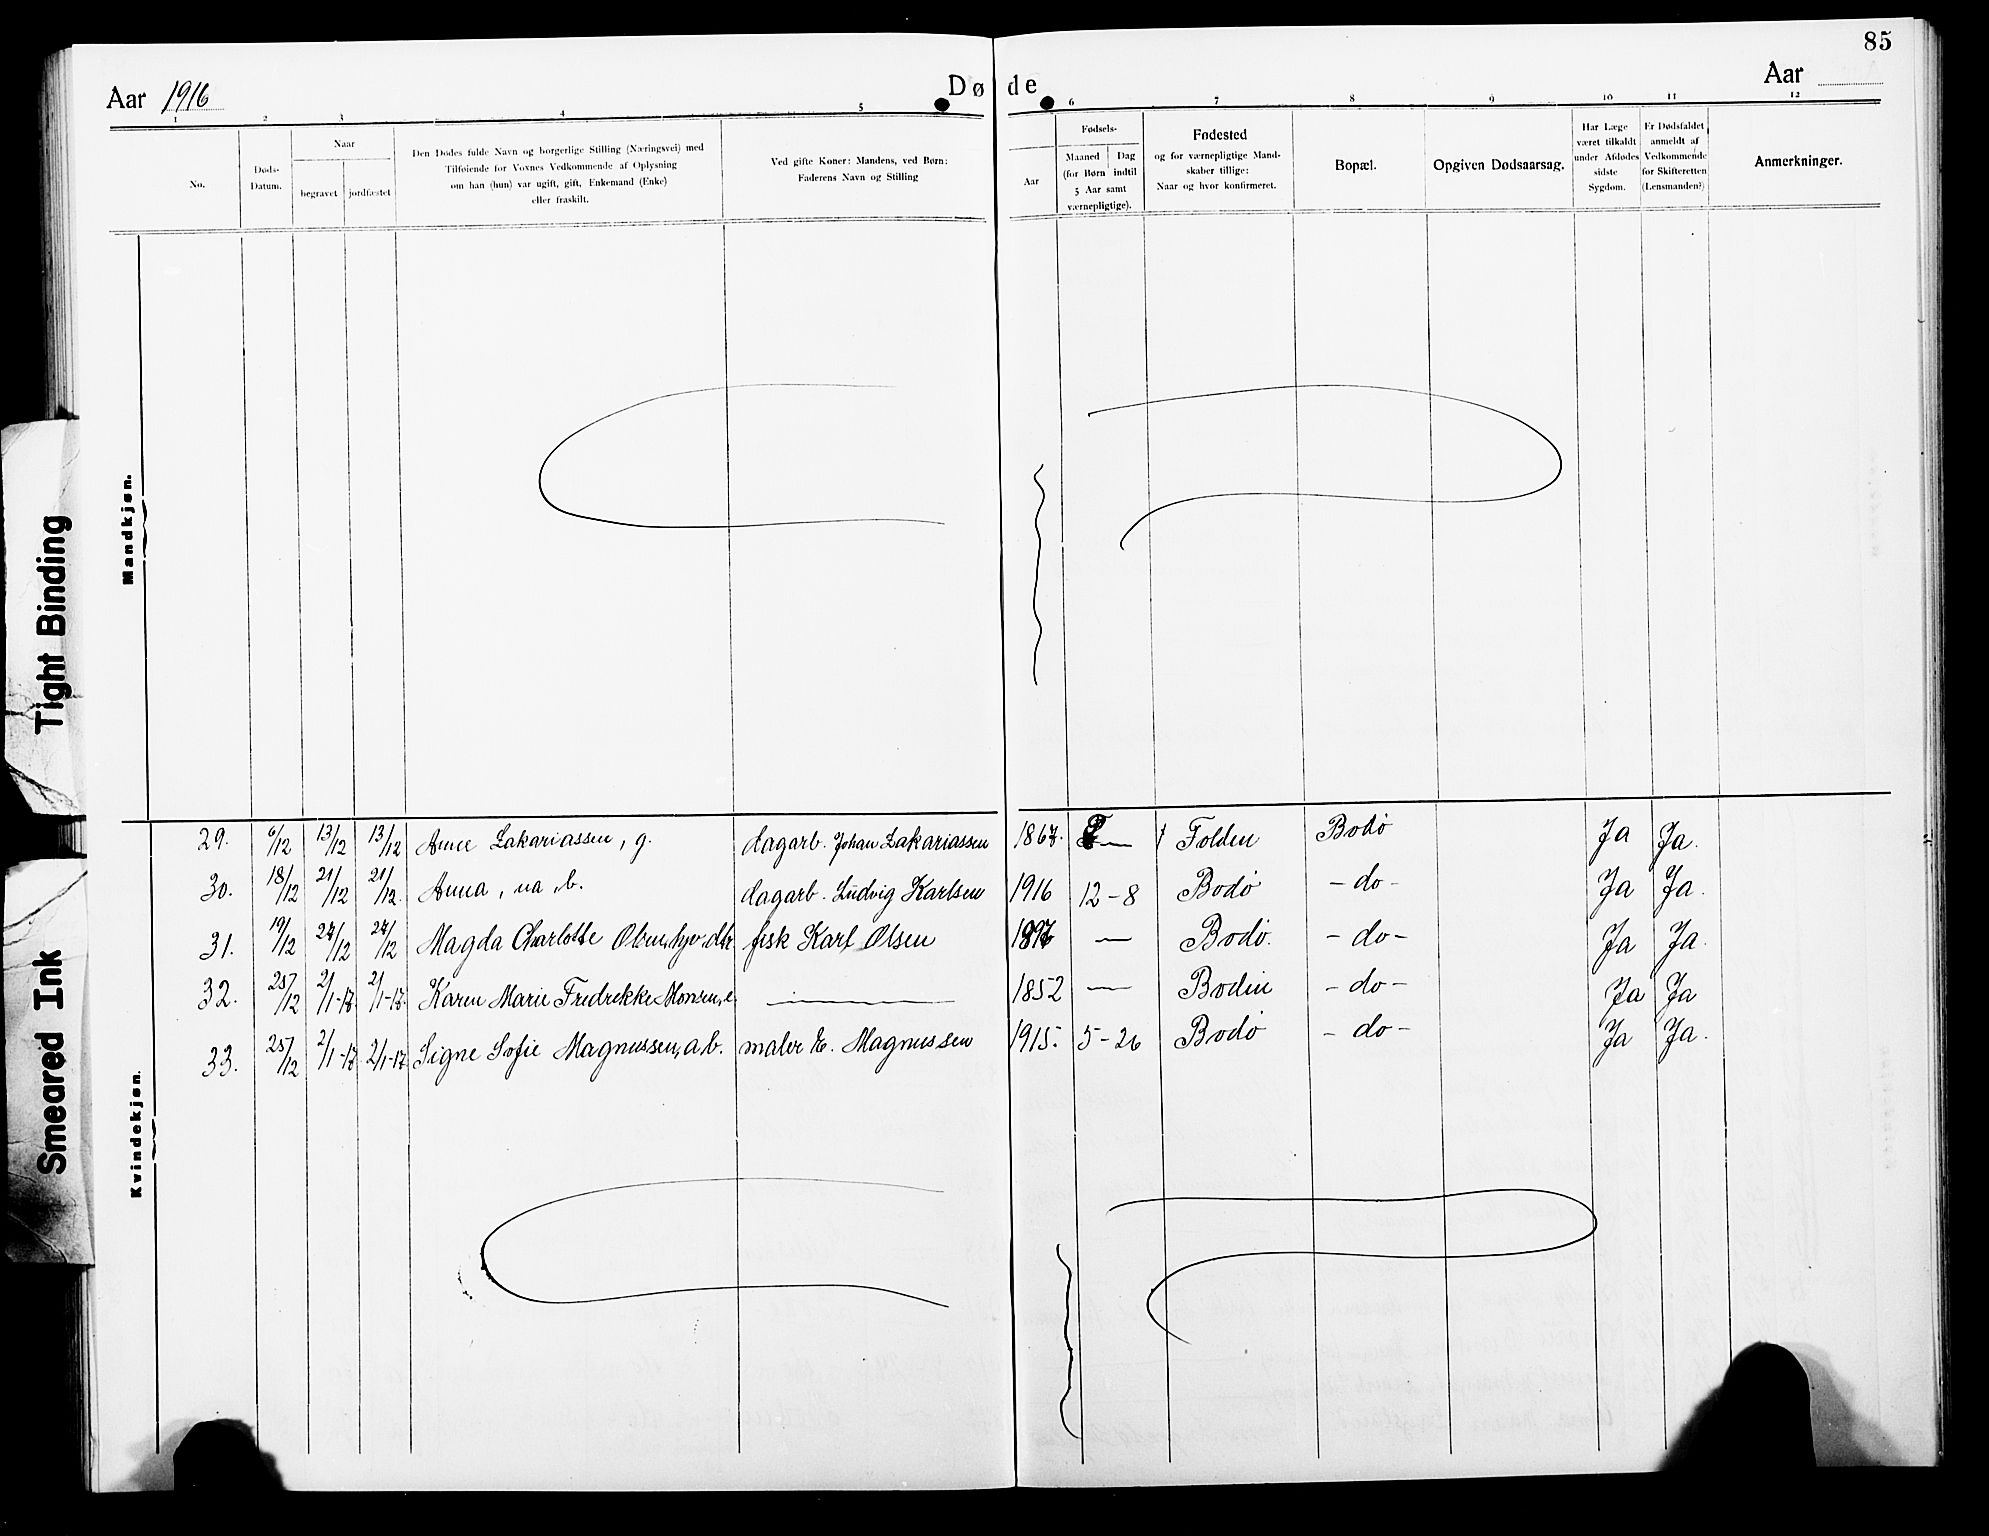 85
Aar 1916
Døde
Aar
1 2 3 4 5 6 7 8 9 10 11 12
No.
Døds-
Datum.
Naar
begravet jordfæstet
Den Dødes fulde Navn og borgerlige Stilling (Næringsvei) med
Tilføiende for Voxnes Vedkommende af Oplysning
om han (hun) var ugift, gift, Enkemand (Enke)
eller fraskilt.
Ved gifte Koner: Mandens, ved Børn:
Faderens Navn og Stilling
Aar
Fødsels-
Maaned Dag
(for Børn indtil
5 Aar samt
værnepligtige).
Fødested
og for værnepligtige Mand-
skaber tillige:
Naar og hvor konfirmeret.
Bopæl.
Opgiven Dødsaarsag.
Har Læge
været tilkaldt
under Afdødes
sidste
Sygdom.
Er Dødsfaldet
anmeldt af
Vedkommende
for Skifteretten
(Lensmanden?)
Anmerkninger.
Mandkjøn.
Kvindekjøn.
29. 6/12 13/12 13/12 Anne Zakariassen, g. dagarb. Johan Zakariassen 1867. — Folden Bodø Ja Ja.
30. 18/12 21/12 21/12. Anna, ua, b. dagarb. Ludvig Karlsen 1916 12-8 Bodø -do- Ja Ja.
31. 19/12 27/12 27/12 Magda Charlotte Olsen, fisk Karl Olsen — Bodø. -do- Ja Ja.
32. 25/12 2/1-17. 2/1-17. Karen Marie Fredrekke Monsen, e. — 1852 — Bodin -do- Ja Ja
33. 25/12 2/1-17 2/1-17 Signe Sofie Magnussen, a.b. maler E. Magnussen 1915. 5-26 Bodø -do- Ja Ja.
Tight Binding
Smeared Ink